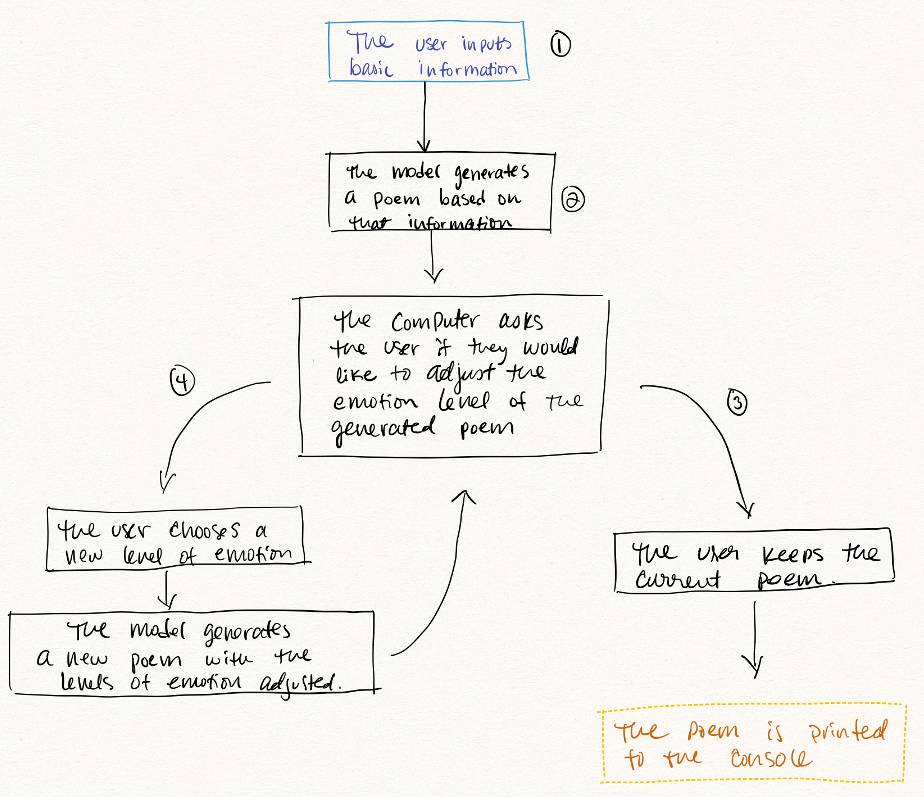 The user inputs
basic information
1
The model generates
a poem based on
that information
2
The computer asks
the user if they would
like to adjust the
emotion level of the
generated poem
4
3
The user chooses a
new level of emotion
The model generates
a new poem with the
levels of emotion adjusted.
The user keeps the
current poem.
The poem is printed
to the console